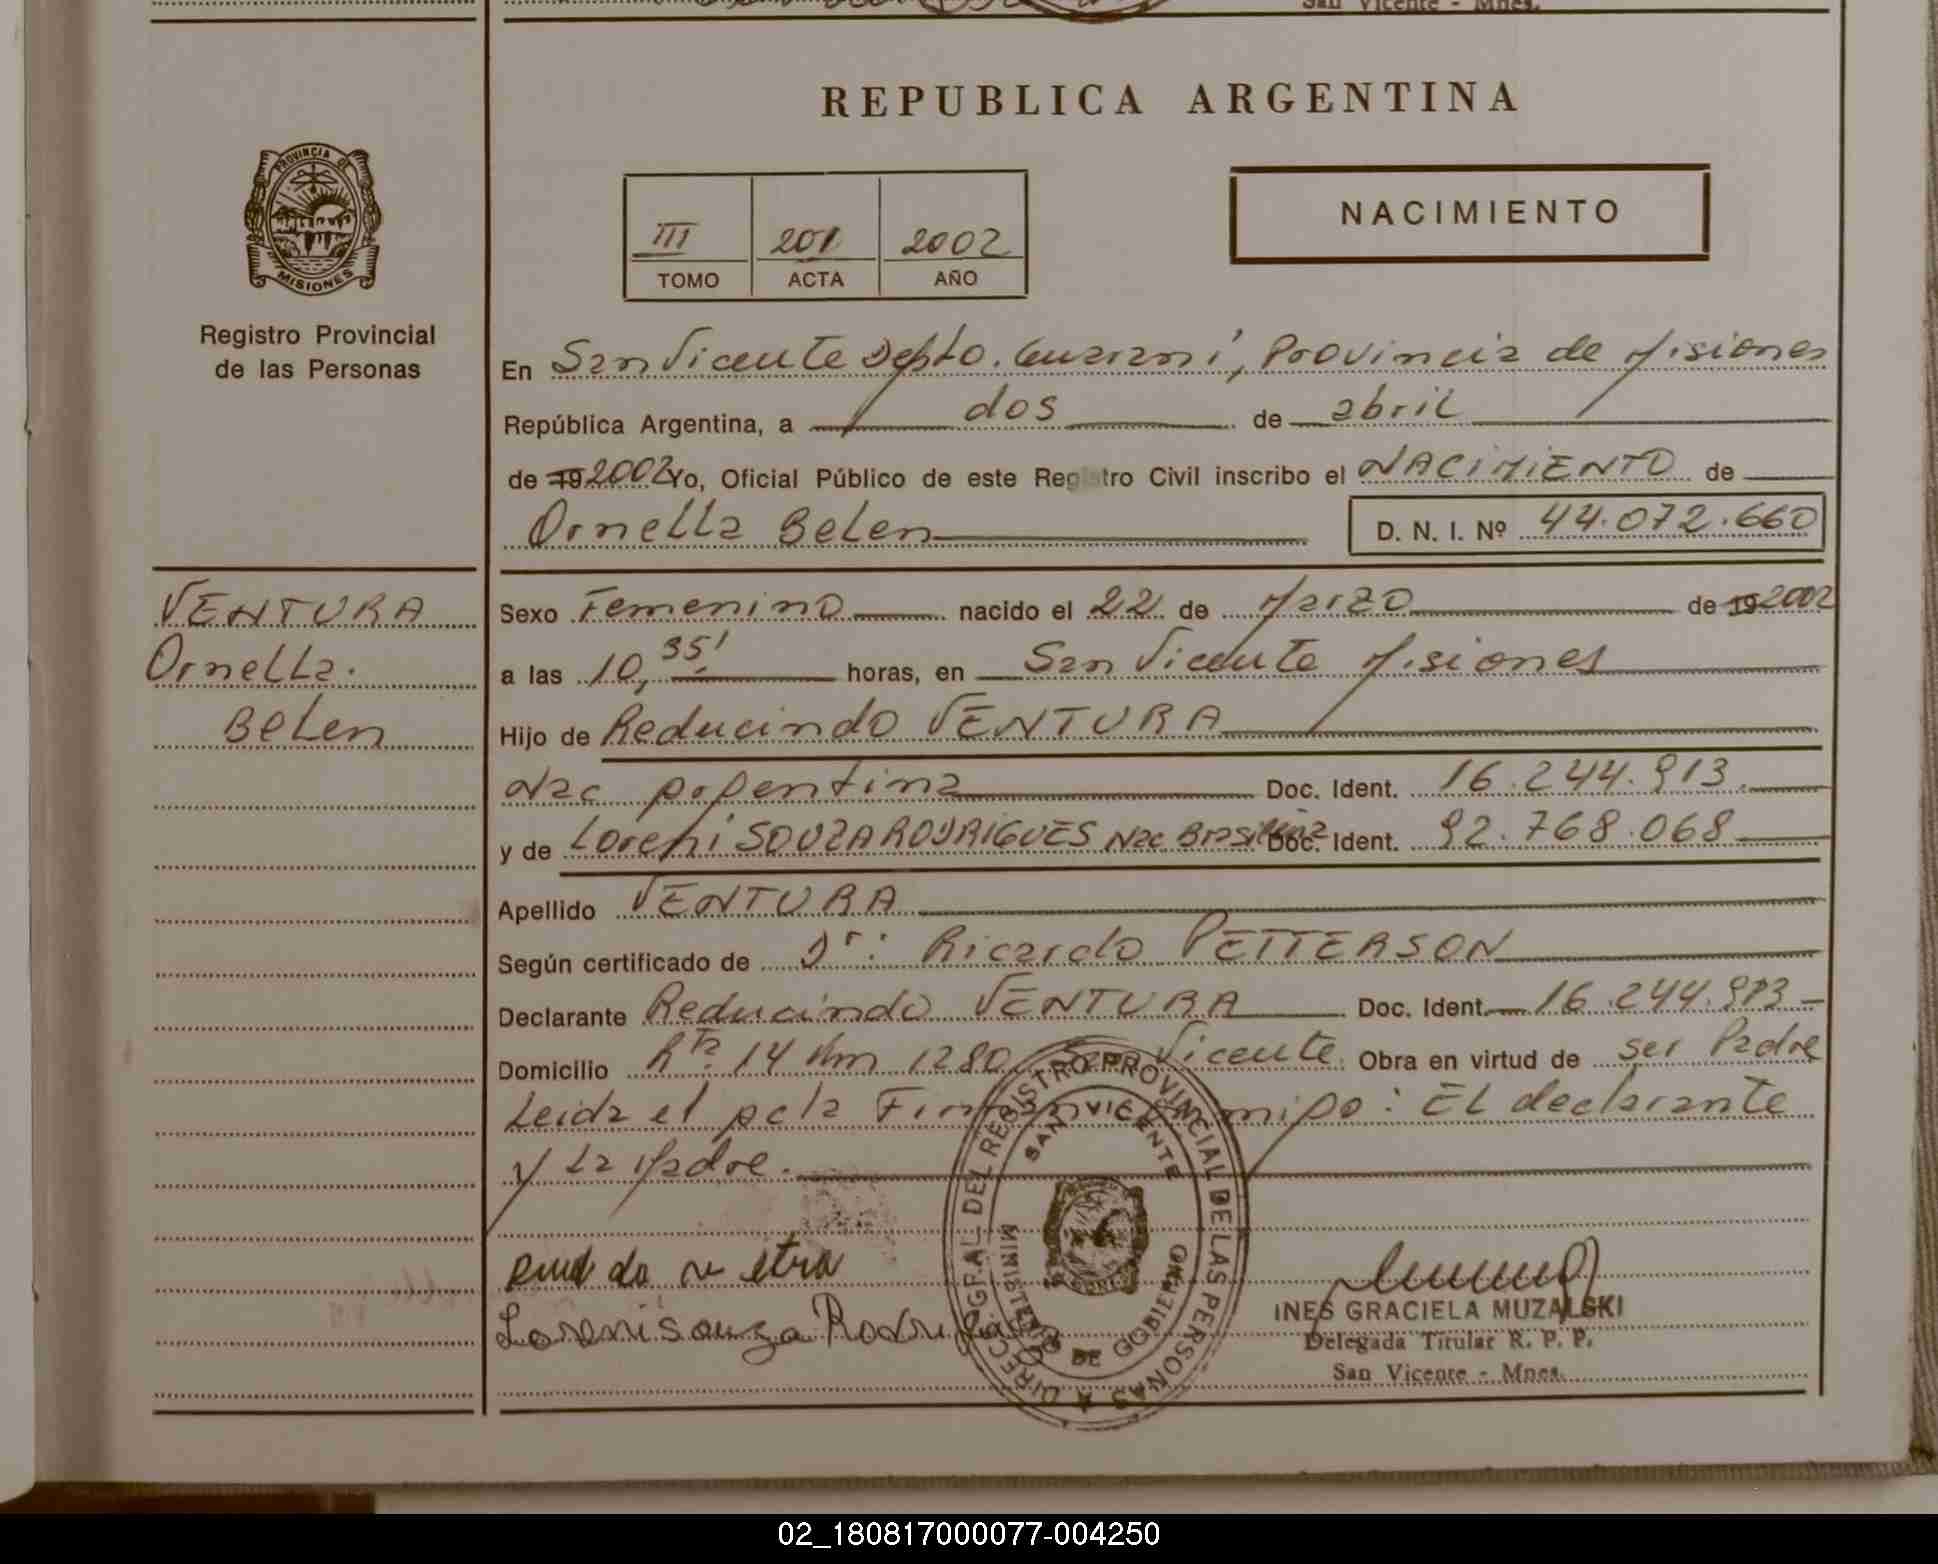 San Vicente - Mnes.
REPUBLICA ARGENTINA
PROVINCIA DE
MISIONES
Registro Provincial
de las Personas
III 201 2002
TOMO ACTA AÑO
NACIMIENTO
En San Vicente Depto. Guaraní, Provincia de Misiones
República Argentina, a dos de abril
de 19 2002 Yo, Oficial Público de este Registro Civil inscribo el NACIMIENTO de
Ornella Belen D. N. I. Nº 44.072.660
VENTURA
Ornella.
Belen
Sexo Femenino nacido el 22 de Marzo de 19 2002
a las 10,35' horas, en San Vicente Misiones
Hijo de Reducindo VENTURA
Nac Argentina Doc. Ident. 16.244.913.
y de Loreni SOUZA RODRIGUES Nac Brasilena Doc. Ident. 92.768.068
Apellido VENTURA
Según certificado de Dr: Ricardo PETTERSON
Declarante Reducindo VENTURA Doc. Ident. 16.244.913
Domicilio Rta 14 Km 1280 San Vicente Obra en virtud de ser Padre
Leida el acta Firman conmigo: El declarante
y la Madre.
Loreni Souza Rodrigues
DIREC. GRAL. DEL REGISTRO PROVINCIAL DE LAS PERSONAS
SAN VICENTE
MINISTERIO DE GOBIERNO
INES GRACIELA MUZALSKI
Delegada Titular R. P. P.
San Vicente - Mnes.
02_180817000077-004250